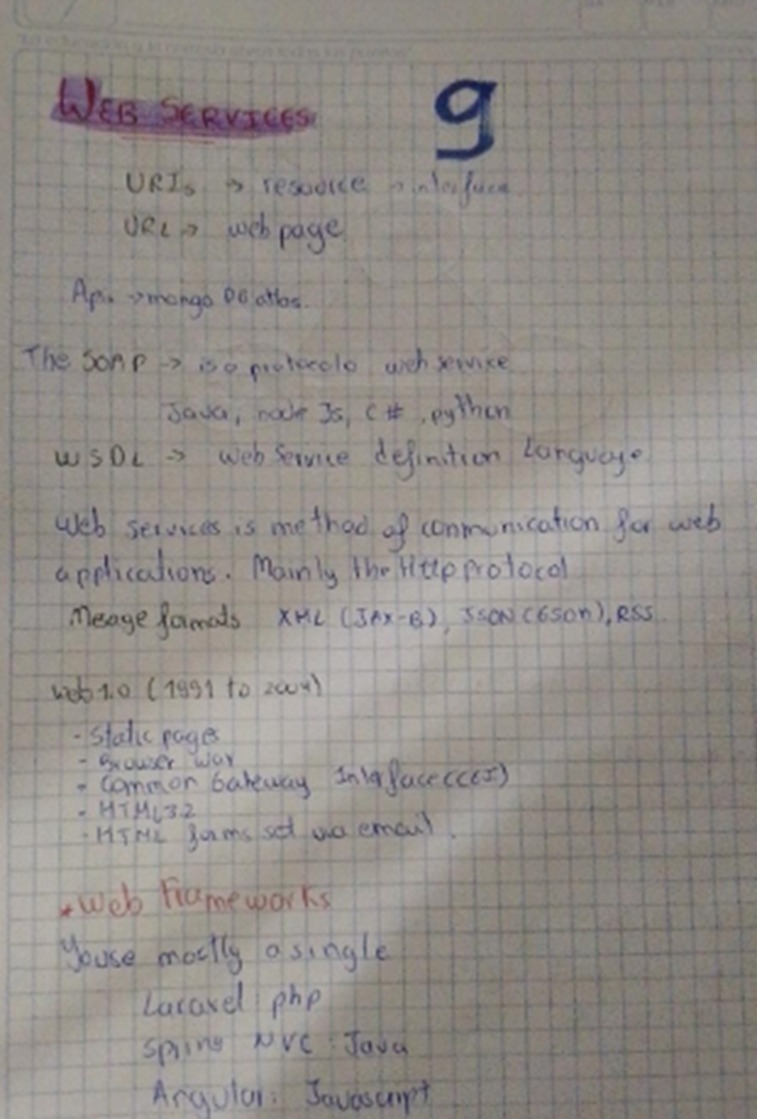 WEB SERVICES 9
URIs → resource → interface
URL → web page
Api → mongo DB atlas.
The SOAP → is a protocolo web service
Java, node Js, C#, python
WSDL → Web Service definition Language
Web services is method of conmunication for web
applications. Mainly the Http protocol
Mesage formats XML (JAX-B), JSON (GSON), RSS
Web 1.0 (1991 to 2004)
- Static pages
- Browser war
- Common Gateway Interface (CGI)
- HTML 3.2
- HTML forms set via email.
* Web Frameworks
You use mostly a single
Laravel: php
Spring MVC: Java
Angular: Javascript